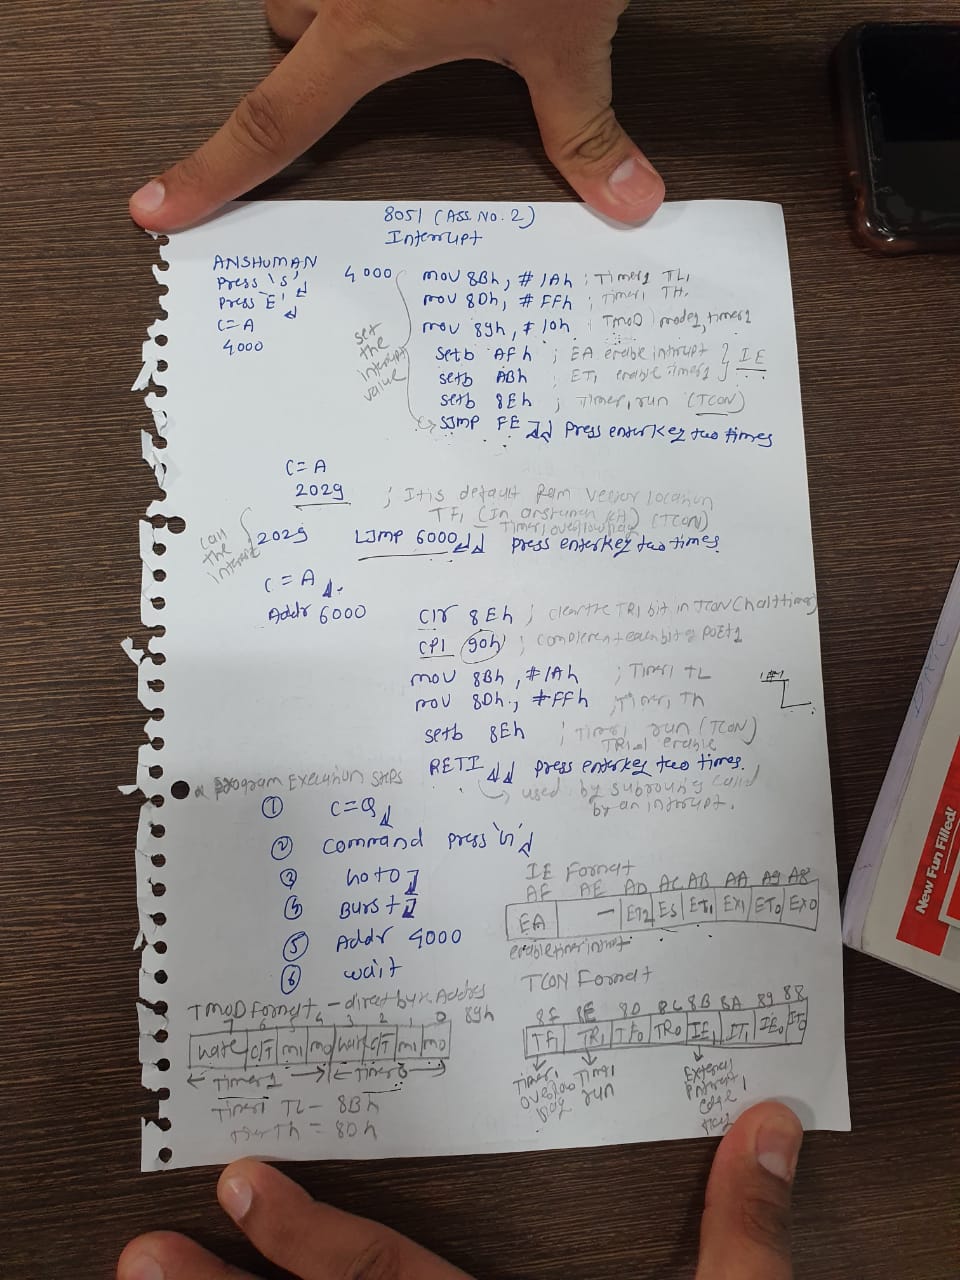 8051 (Ass. No. 2)
Interrupt
ANSHUMAN
Press 'S'
Press 'E'
C = A
4000
set
the
interrupt
value
4000 mov 8Bh, #1Ah ; Timer1 TL1
mov 8Dh, #FFh ; Timer1 TH1
mov 89h, #10h TMOD mode1, timer1
setb AFh ; EA enable intrupt } IE
setb ABh ; ET1 enable timer1
setb 8Eh ; Timer1 run (TCON)
SJmp FE press enter key two times
C = A
2029 ; It is default Ram vector location
TF1 (In anshuman kit) (TCON)
Timer1 overflow flag
call
the
2029 LJmp 6000 press enter key two times.
C = A
Addr 6000 Clr 8Eh ; clear the TR1 bit in TCON (halt timer)
CPl 90h ; complement each bit of port1
mov 8Bh, #1Ah ; Timer1 TL
mov 8Dh, #FFh ; Timer1 TH
setb 8Eh ; Timer1 run (TCON)
TR1=1 enable
RETI press enter key two times.
used by subrouting calld
by an intrrupt.
program Execution steps
① C = Q
② command press 'n'
③ noto
④ Burst
⑤ Addr 4000
⑥ wait
IE Format
AF AE AD AC AB AA A9 A8
EA – ET2 ES ET1 EX1 ET0 EX0
TCON Format
8F 8E 8D 8C 8B 8A 89 88
TF1 TR1 TF0 TR0 IE1 IT1 IE0 IT0
Timer1
overflow
flag
Timer1
run
External
edge
flag
TMOD Format – direct byte Addres
89h
7 6 5 4 3 2 1 0
Gate C/T m1 m0 Gate C/T m1 m0
Timer 1 Timer 0
Timer1 TL – 8Bh
TH = 8Dh
New Fun Filled!